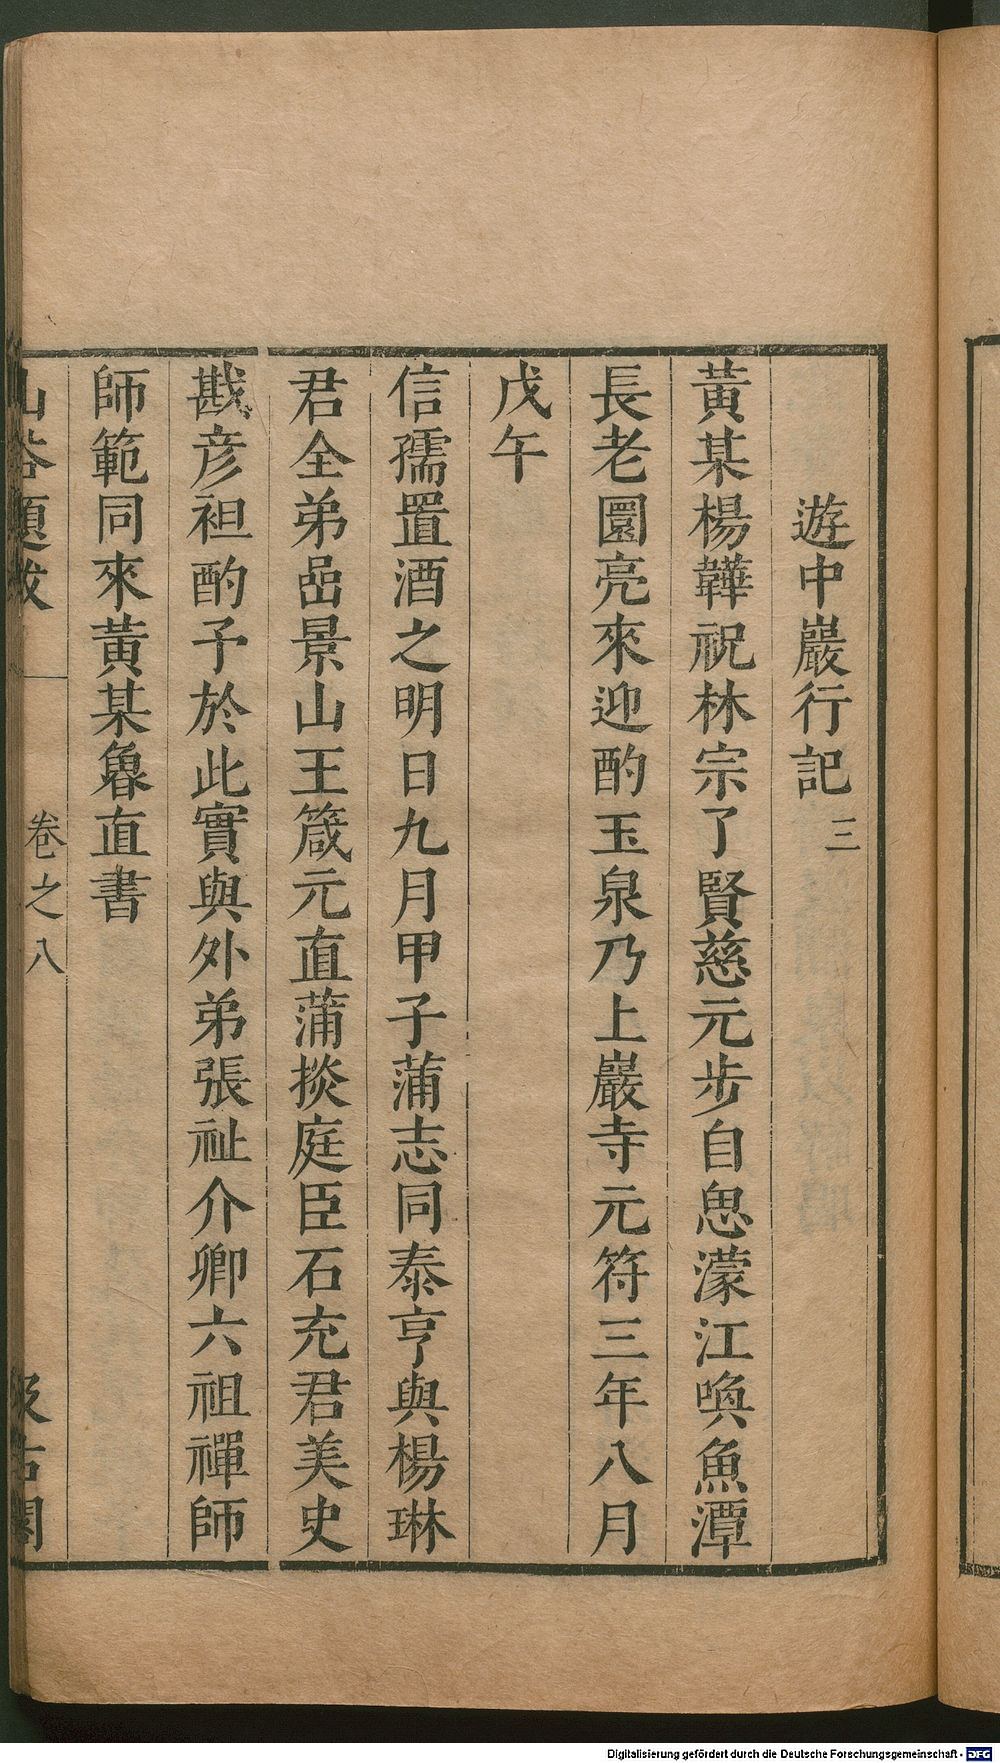 遊中巖行記 三
黃某楊韡祝林宗了賢慈元步自思濛江喚魚潭
長老圜亮來迎酌玉泉乃上巖寺元符三年八月
戊午
信孺置酒之明日九月甲子蒲志同泰亨與楊琳
君全弟嵒景山王箴元直蒲掞庭臣石充君美史
戡彥袒酌予於此實與外弟張祉介卿六祖禪師
師範同來黃某魯直書
山谷題跋 卷之八 汲古閣
Digitalisierung gefördert durch die Deutsche Forschungsgemeinschaft - DFG